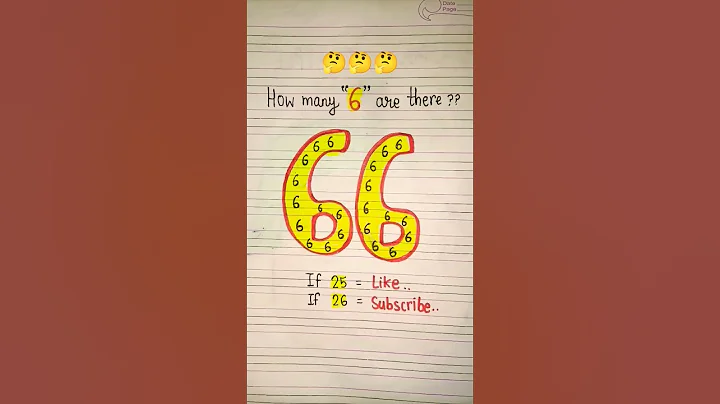 Date
Page
How many "6" are there ??
66
6 6 6 6 6 6 6 6 6 6 6
6 6 6 6 6 6 6 6 6 6 6
If 25 = Like..
If 26 = Subscribe..